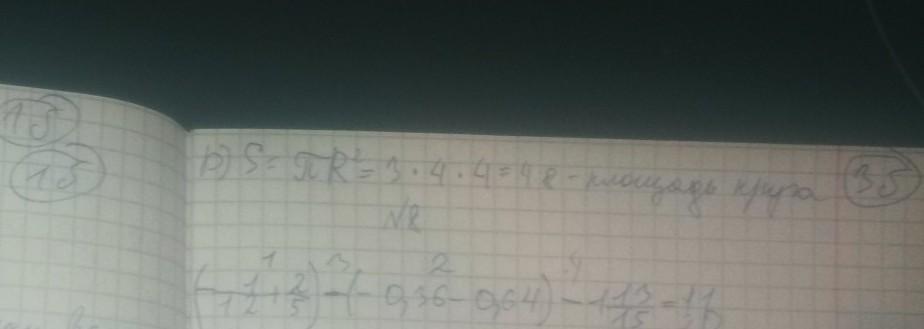 1б
1б
b) S = πR² = 3 · 4 · 4 = 48 - площадь круга 3б
№8
1 3 2 4
(-1/12 + 2/5) - (-0,36 - 0,64) - 1 13/15 =